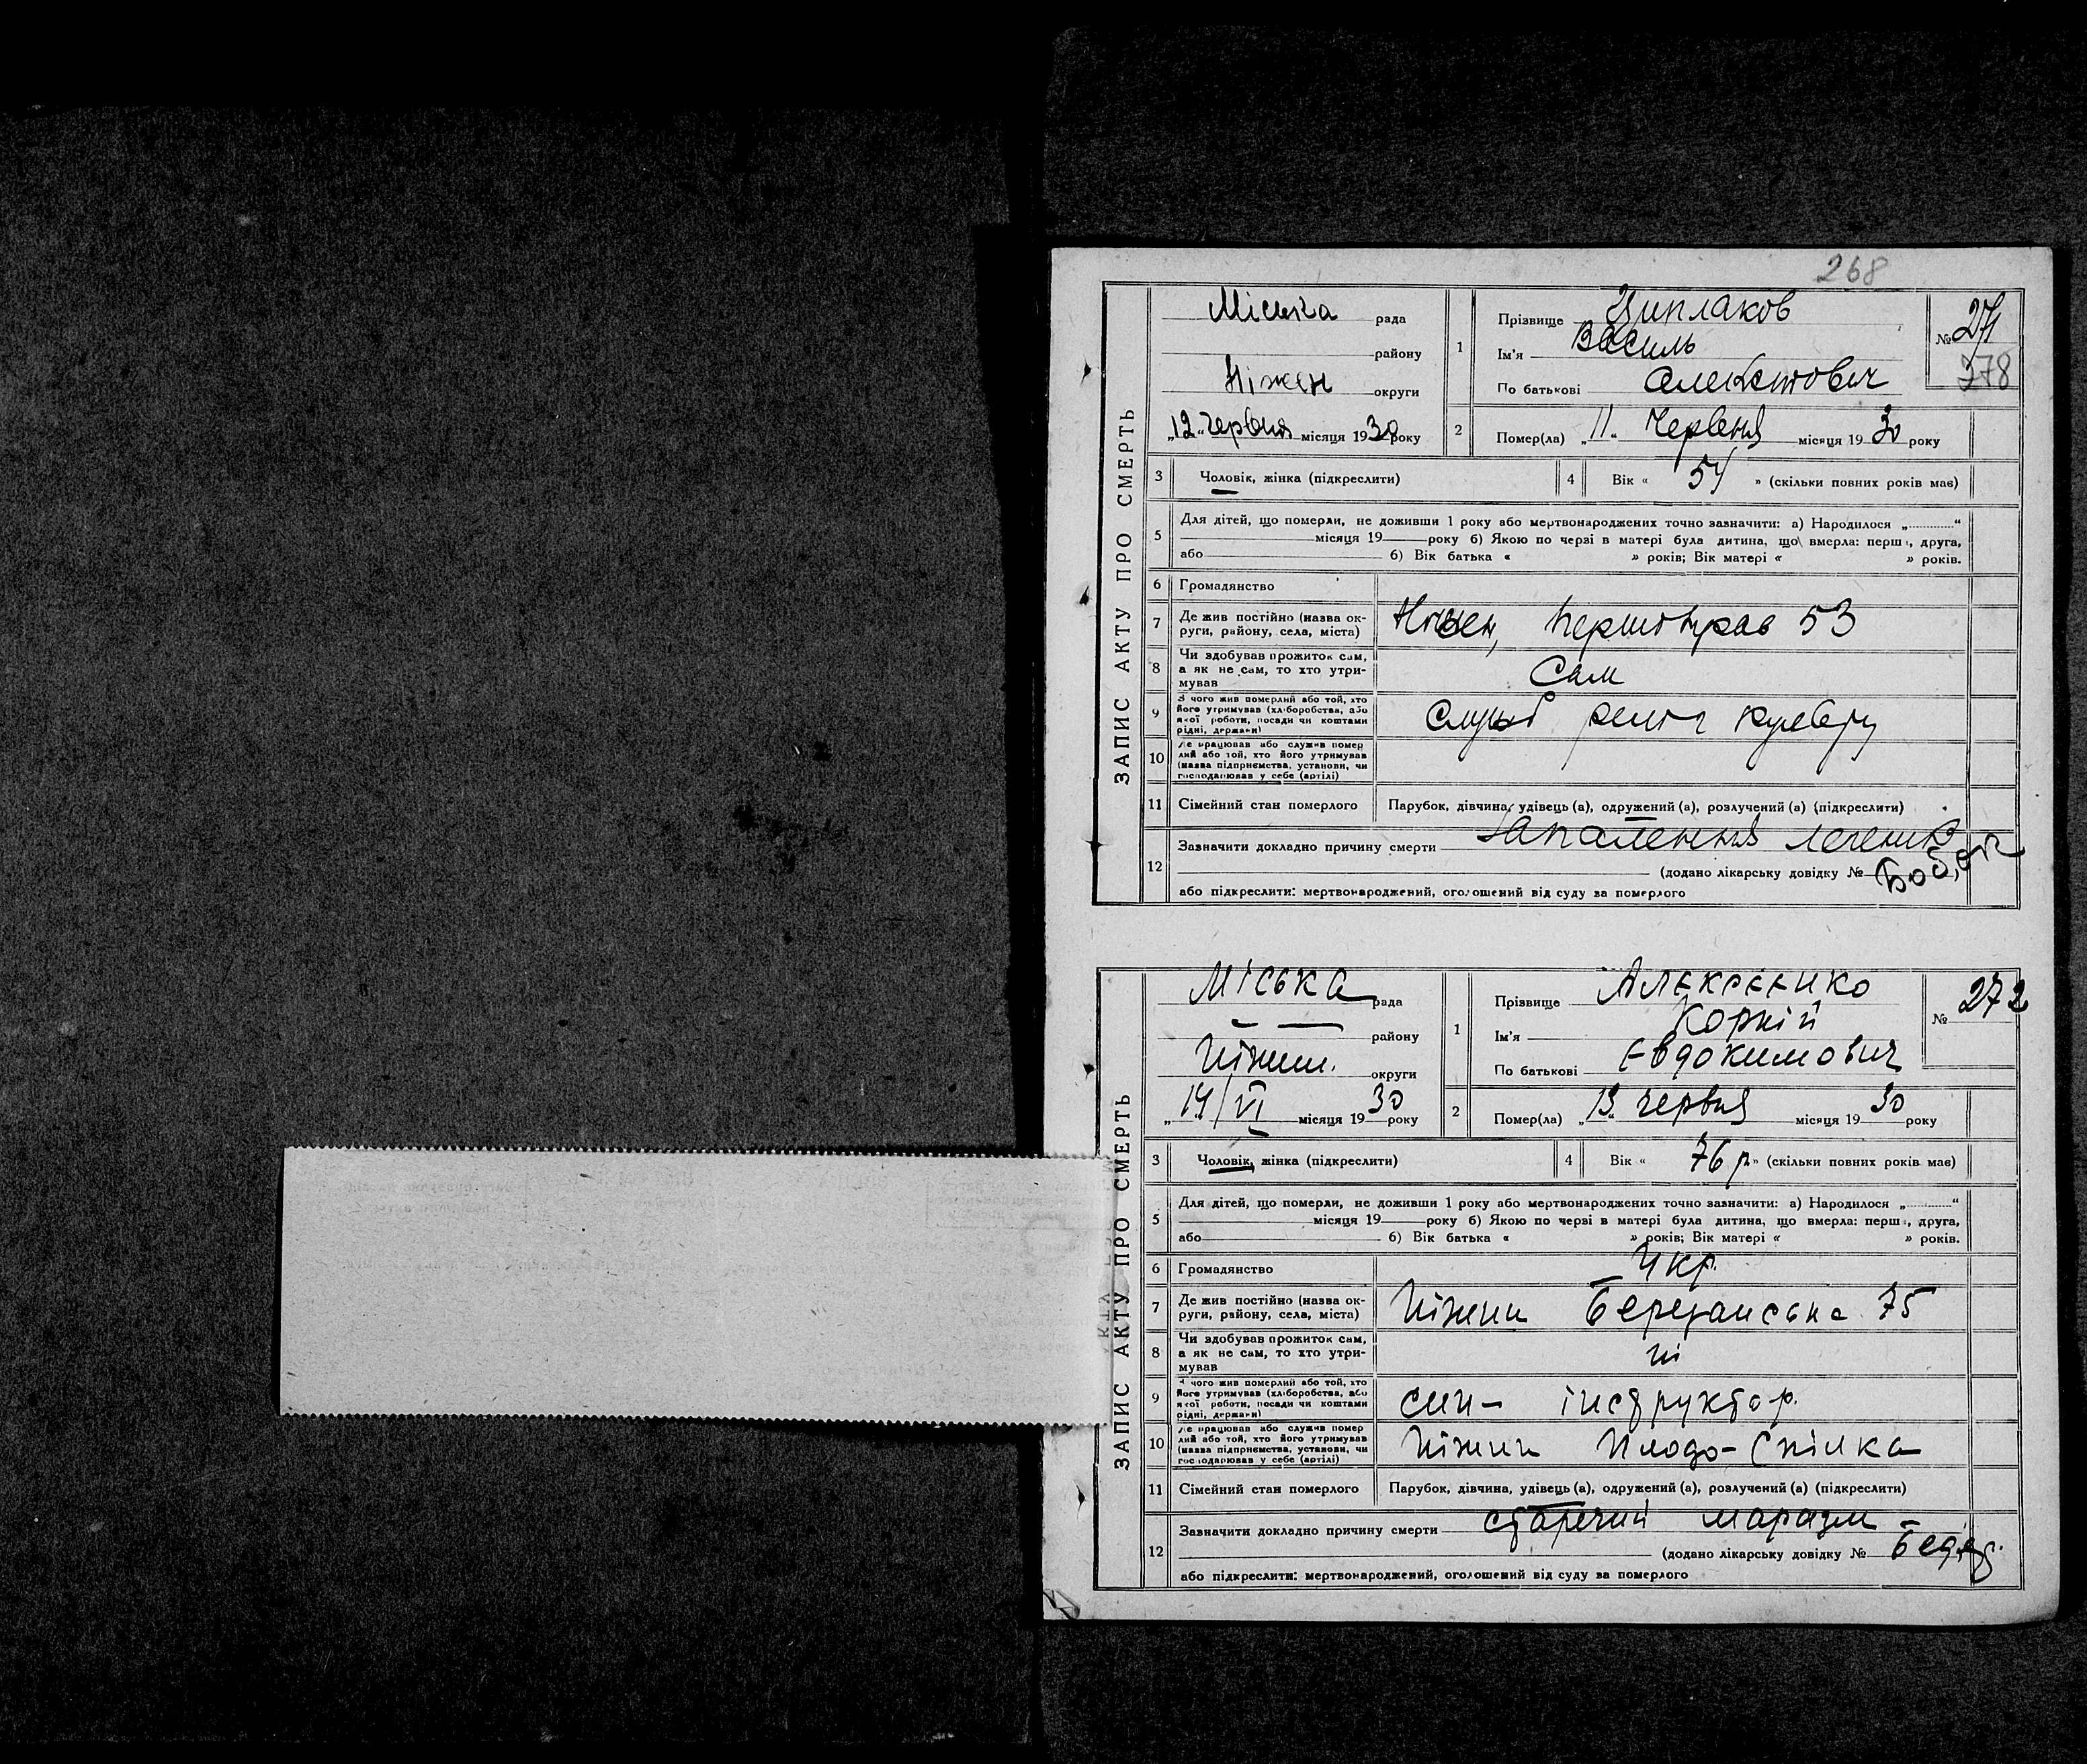 268
ЗАПИС АКТУ ПРО СМЕРТЬ
Міська рада
району
Ніжен округи
„12“ червня місяця 1930 року
1
Прізвище Циплаков
Ім'я Василь
По батькові
№ 271
278
2
Помер(ла) „11“ червня місяця 1930 року
3 Чоловік, жінка (підкреслити)
4 Вік « » (скільки повних років має)
5 Для дітей, що померли, не доживши 1 року або мертвонароджених точно зазначити: а) Народилося „ “
місяця 19 року б) Якою по черзі в матері була дитина, що вмерла: перш , друга,
або б) Вік батька « » років; Вік матері « » років.
6 Громадянство
7 Де жив постійно (назва ок-
руги, району, села, міста)
Ніжен, 53
8 Чи здобував прожиток сам,
а як не сам, то хто утри-
мував
Сам
9 З чого жив померлий або той, хто
його утримував (хліборобства, або
якої роботи, посади чи коштами
рідні, держави)
Служб культу
10 Де працював або служив помер
лий або той, хто його утримував
(назва підприємства, установи, чи
господарював у себе (артілі)
11 Сімейний стан померлого
Парубок, дівчина, удівець (а), одружений (а), розлучений (а) (підкреслити)
12 Зазначити докладно причину смерти Запалення легенів
(додано лікарську довідку №
або підкреслити: мертвонароджений, оголошений від суду за померлого
ЗАПИС АКТУ ПРО СМЕРТЬ
Міська рада
району
Ніжин. округи
„14/VI місяця 1930 року
1
Прізвище Алєксєєнко
Ім'я Корній
По батькові Євдокимович
№ 272
2
Помер(ла) „13“ червня місяця 1930 року
3 Чоловік, жінка (підкреслити)
4 Вік « 76 р » (скільки повних років має)
5 Для дітей, що померли, не доживши 1 року або мертвонароджених точно зазначити: а) Народилося „ “
місяця 19 року б) Якою по черзі в матері була дитина, що вмерла: перш , друга,
або б) Вік батька « » років; Вік матері « » років.
6 Громадянство Укр.
7 Де жив постійно (назва ок-
руги, району, села, міста)
Ніжин Березанська 75
8 Чи здобував прожиток сам,
а як не сам, то хто утри-
мував
ні
9 З чого жив померлий або той, хто
його утримував (хліборобства, або
якої роботи, посади чи коштами
рідні, держави)
син – інструктор.
10 Де працював або служив помер
лий або той, хто його утримував
(назва підприємства, установи, чи
господарював у себе (артілі)
Ніжин Плодо-Спілка
11 Сімейний стан померлого
Парубок, дівчина, удівець (а), одружений (а), розлучений (а) (підкреслити)
12 Зазначити докладно причину смерти старечий маразм –
(додано лікарську довідку №
або підкреслити: мертвонароджений, оголошений від суду за померлого